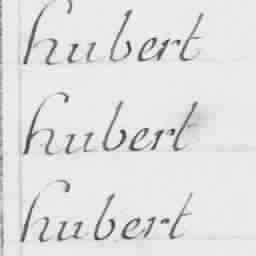 hubert
hubert
hubert